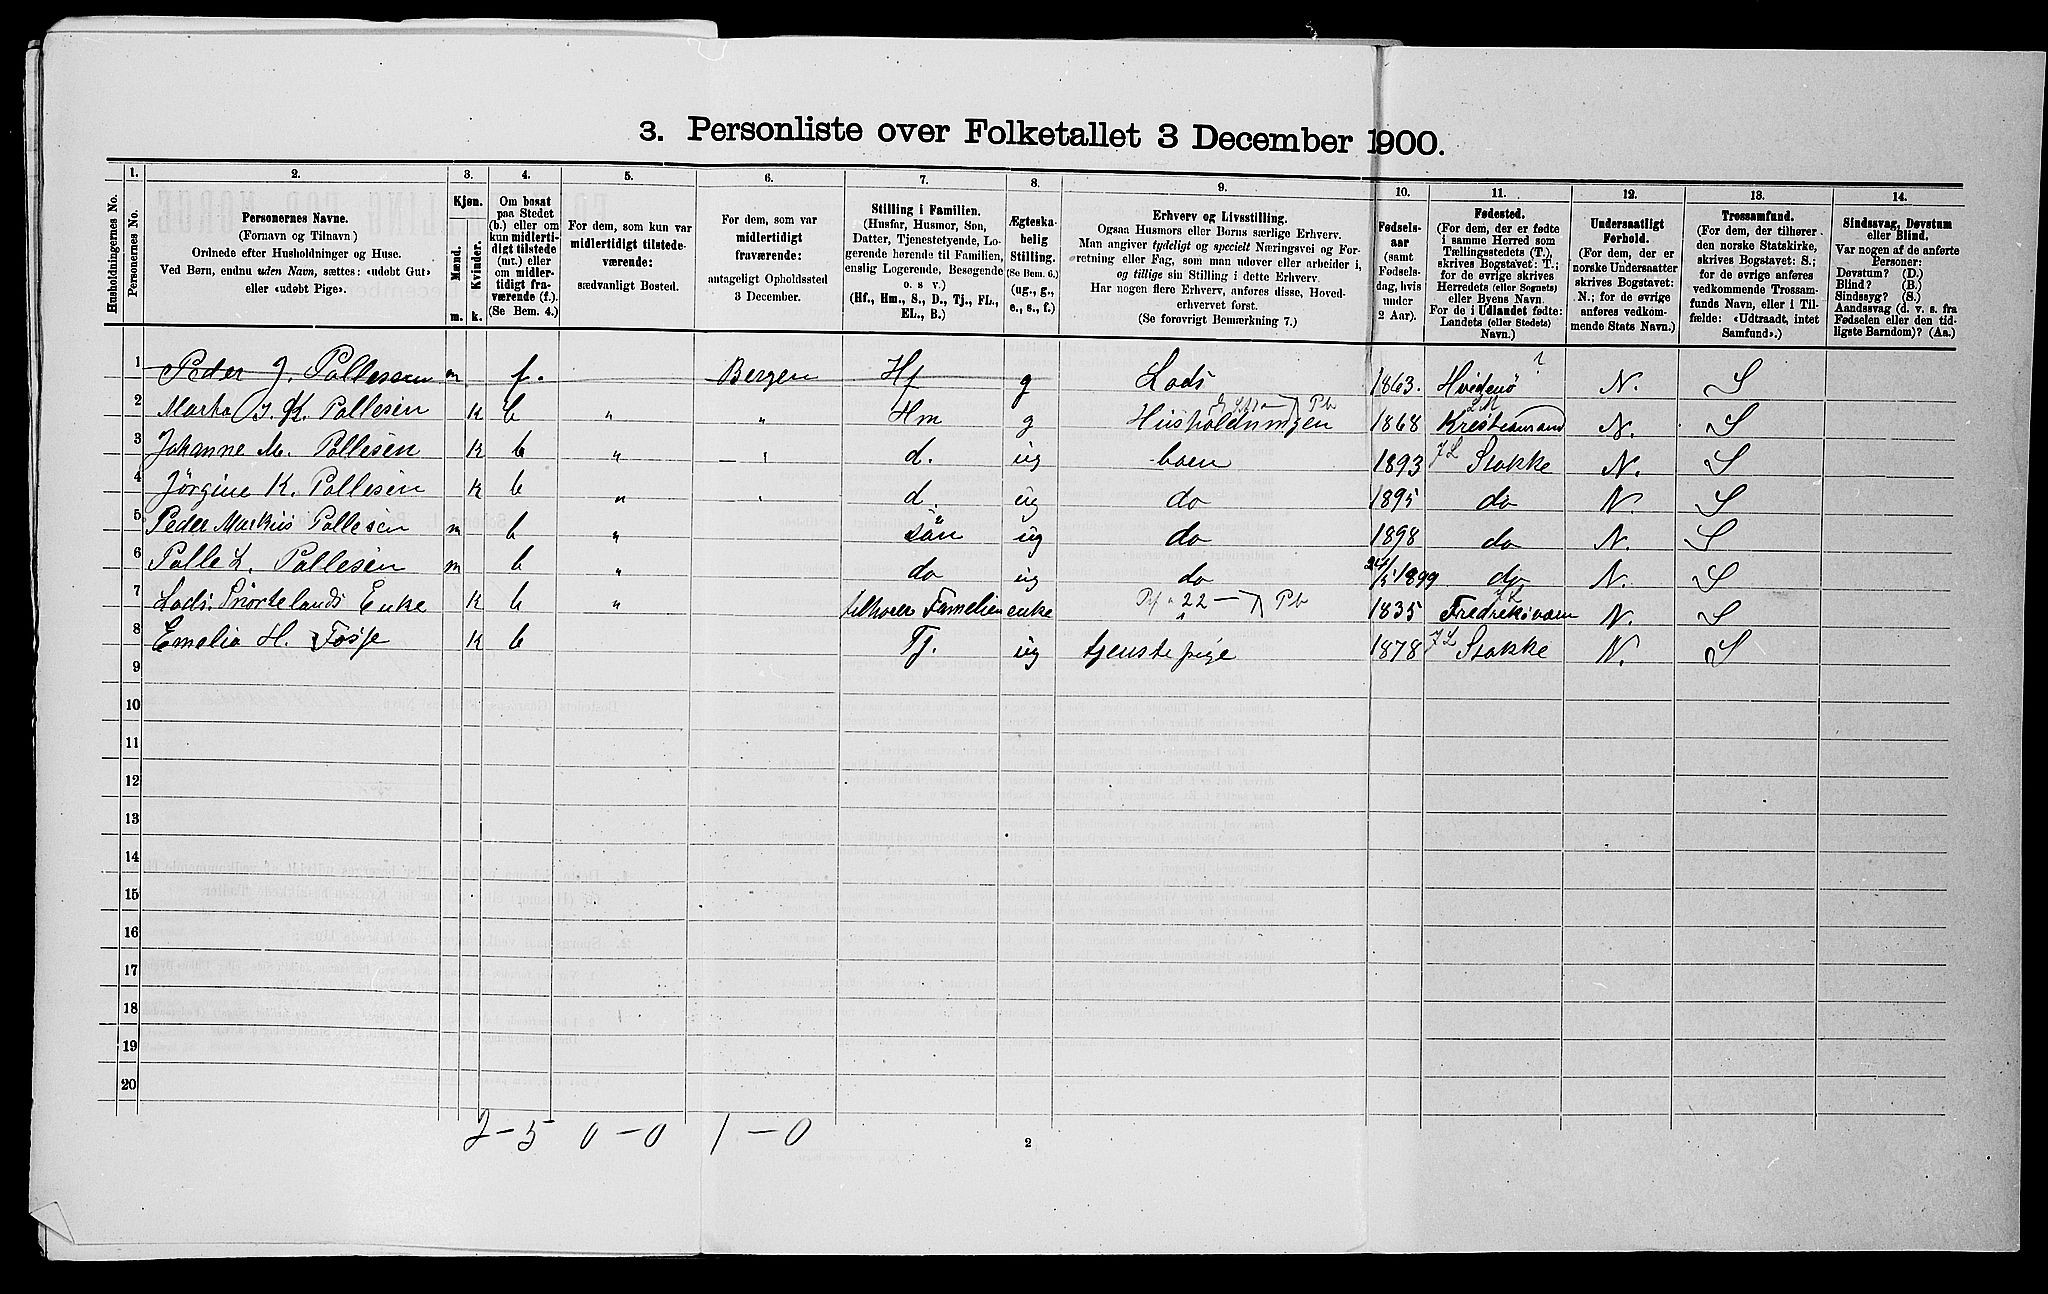 3. Personliste over Folketallet 3 December 1900.
1. 2. 3. 4. 5. 6. 7. 8. 9. 10. 11. 12. 13. 14.
Husholdningernes No.
Personernes No.
Personernes Navne.
(Fornavn og Tilnavn)
Ordnede efter Husholdninger og Huse.
Ved Børn, endnu uden Navn, sættes: «udøbt Gut»
eller «udøbt Pige».
Kjøn.
Mænd.
Kvinder.
m. k.
Om bosat
paa Stedet
(b.) eller om
kun midlerti-
digt tilstede
(mt.) eller
om midler-
tidigt fra-
værende (f.).
(Se Bem. 4.)
For dem, som kun var
midlertidigt tilstede-
værende:
sædvanligt Bosted.
For dem, som var
midlertidigt
fraværende:
antageligt Opholdssted
3 December.
Stilling i Familien.
(Husfar, Husmor, Søn,
Datter, Tjenestetyende, Lo-
gerende hørende til Familien,
enslig Logerende, Besøgende
o. s v.)
(Hf., Hm., S., D., Tj., FL.,
EL., B.)
Ægteska-
belig
Stilling.
(Se Bem. 6.)
(ug., g.,
e., s., f.)
Erhverv og Livsstilling.
Ogsaa Husmors eller Børns særlige Erhverv.
Man angiver tydeligt og specielt Næringsvei og For-
retning eller Fag, som man udover eller arbeider i,
og tillige sin Stilling i dette Erhverv.
Har nogen flere Erhverv, anføres disse, Hoved-
erhvervet først.
(Se forøvrigt Bemærkning 7.)
Fødsels-
aar
(samt
Fødsels-
dag, hvis
under
2 Aar).
Fødested.
(For dem, der er fødte
i samme Herred som
Tællingsstedets (T.),
skrives Bogstavet: T.;
for de øvrige skrives
Herredets (eller Sognets)
eller Byens Navn.
For de i Udlandet fødte:
Landets (eller Stedets)
Navn.)
Undersaatligt
Forhold.
(For dem, der er
norske Undersaatter
skrives Bogstavet:
N.; for de øvrige
anføres vedkom-
mende Stats Navn.)
Trossamfund.
(For dem, der tilhører
den norske Statskirke,
skrives Bogstavet: S.;
for de øvrige anføres
vedkommende Trossam-
funds Navn, eller i Til-
fælde: «Udtraadt, intet
Samfund».)
Sindssvag, Døvstum
eller Blind.
Var nogen af de anførte
Personer:
Døvstum? (D.)
Blind? (B.)
Sindssyg? (S.)
Aandssvag (d. v. s. fra
Fødselen eller den tid-
ligste Barndom)? (Aa.)
1 Peder J. Pallessen m f. Bergen Hf g Lods 1863. Hvidesø ? N. S
2 Marta J. K. Pallesen K b " " Hm g Husholdningen 1868 Kristiansand N. S
3 Johanne M. Pallesen K b " " d. ug barn 1893 Stokke N. S
4 Jørgine K. Pallesen K b " " d. ug do 1895 do N S
5 Peder Markus Pallesen m b " sån ug do 1898 do N. S
6 Palle L. Pallesen m b " do ug do 24/5 1899 do N. S
7 Lods. Enke K b " tilhører Familien enke 1835 Fredriksværn N. S
8 Emelia H. K b Tj. ug tjenste pige 1878 Stokke N. S
9
10
11
12
13
14
15
16
17
18
19
20
2-5 0-0 1-0
2